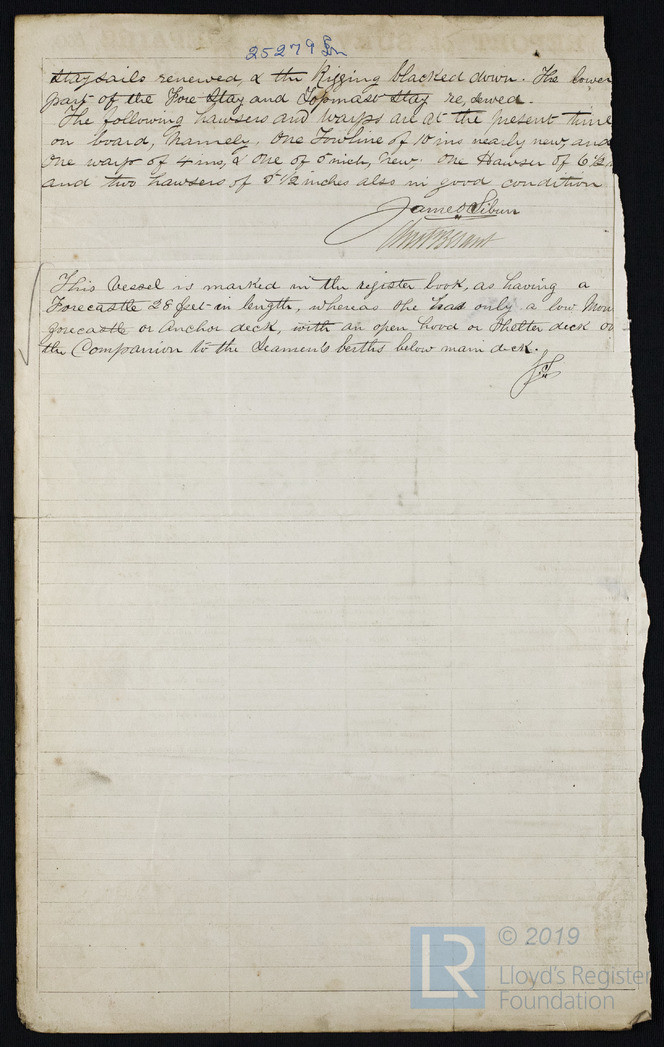 25279 Lon
Staysails renewed, & the Rigging blacked down. The lower
part of the Fore Stay and Topmast Stay re,sewed.
The following hawsers and warps are at the present time
on board, Namely, One Towline of 10 ins nearly new, and
One warp of 4 ins, & One of 5 inch, New; One Hawser of 6 1/2
and two hawsers of 5 1/2 inches also in good condition
James Sibun
This Vessel is marked in the register book, as having a
Forecastle 28 feet in length, whereas She has only a low Mon
forecastle or Anchor deck, with an open hood or Shelter deck
the Companion to the Seamen's berths below main deck.
JS
LR © 2019
Lloyd's Register
Foundation